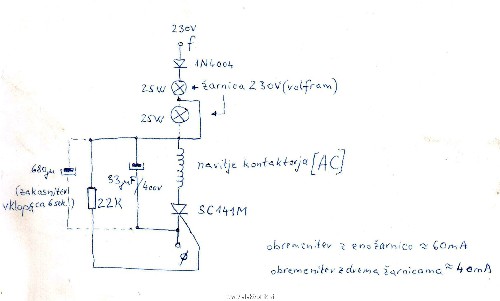 230V
f
1N4004
25W
žarnica 230V (volfram)
25W
navitje kontaktorja [AC]
680µ
(zakasnitev
vklopa ca 6sek.)
33µF/400V
22K
SC141M
Ø
obremenitev z eno žarnico ≈ 60mA
obremenitev z dvema žarnicama ≈ 40mA